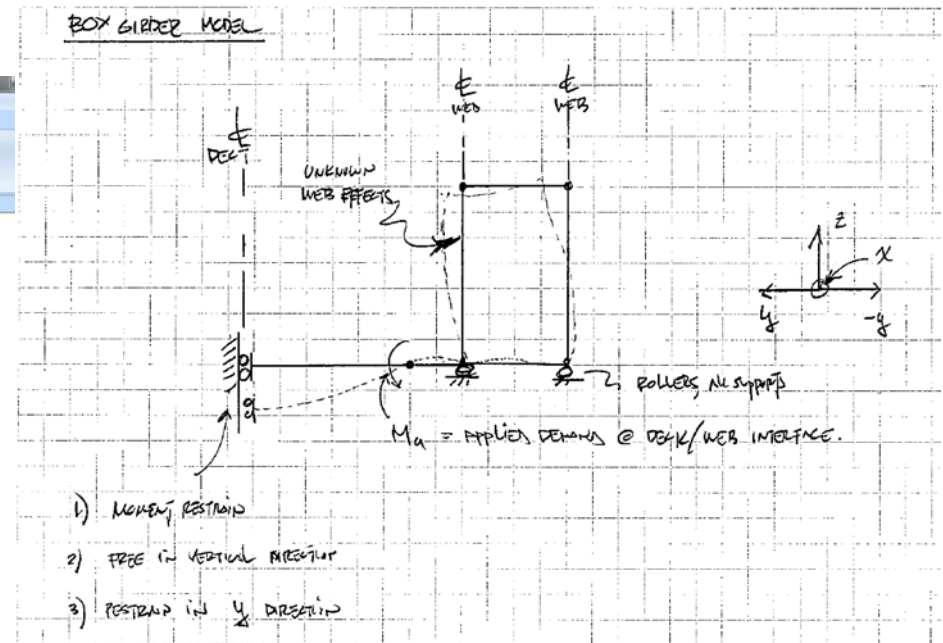 BOX GIRDER MODEL
℄
WEB
℄
WEB
℄
DECK
UNKNOWN
WEB EFFECTS
z
x
y
-y
ROLLERS, ALL SUPPORTS
Mu = APPLIED DEMAND @ DECK/WEB INTERFACE.
1) MOMENT RESTRAIN
2) FREE IN VERTICAL DIRECTION
3) RESTRAIN IN y DIRECTION